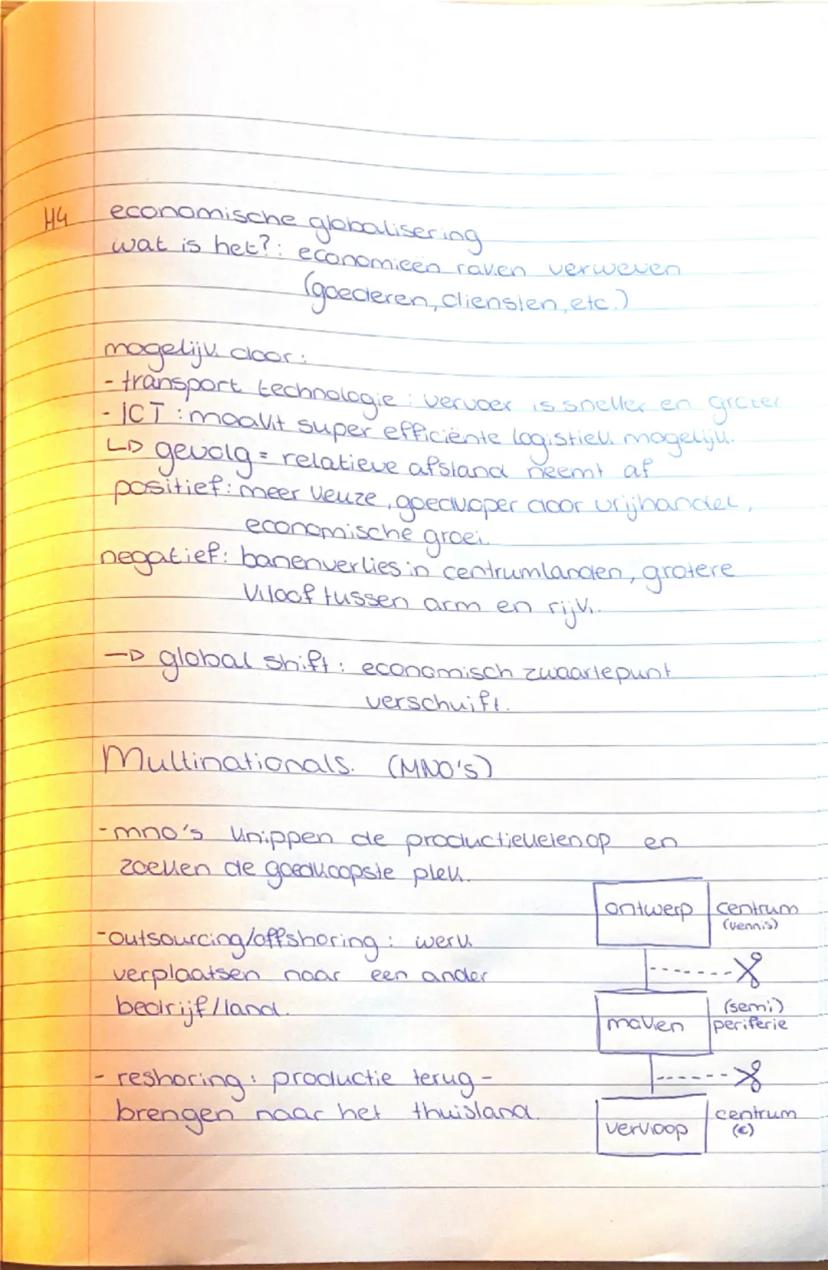 H4 economische globalisering
wat is het?: economieen raken verweven
(goederen, diensten, etc.)
mogelijk door:
- transport technologie: vervoer is sneller en groter
- ICT: maakt super efficiënte logistiek mogelijk.
↳ gevolg = relatieve afstand neemt af
positief: meer keuze, goedkoper door vrijhandel,
economische groei.
negatief: banenverlies in centrumlanden, grotere
kloof tussen arm en rijk.
→ global shift: economisch zwaartepunt
verschuift.
Multinationals. (MNO's)
- mno's knippen de productieketen op en
zoeken de goedkoopste plek.
- outsourcing/offshoring: werk
verplaatsen naar een ander
bedrijf/land.
- reshoring: productie terug-
brengen naar het thuisland.
ontwerp centrum
(kennis)
maken (semi)
periferie
verkoop centrum
(€)